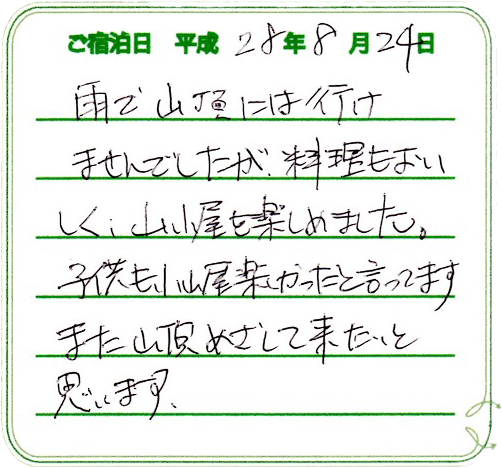 ご宿泊日 平成 28年 8月 24日
雨で山頂には行け
ませんでしたが、料理もおい
しく、山小屋を楽しめました。
子供も小山屋楽しかったと言ってます
また山頂めざして来たいと
思います。